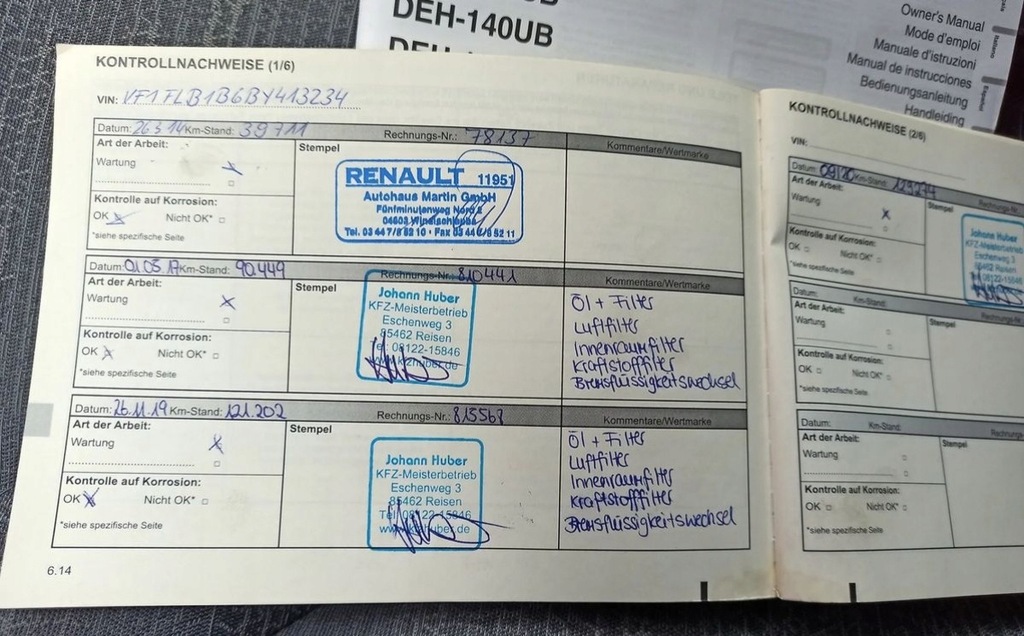 DEH-140UB
Owner's Manual
Mode d'emploi
Manuale d'istruzioni
Manual de instrucciones
Bedienungsanleitung
Handleiding
Italiano
Español
KONTROLLNACHWEISE (1/6)
VIN: VF1FLB1B6BY413234
Datum: 26 3 14 Km-Stand: 39711 Rechnungs-Nr.: 78137
Kommentare/Wertmarke
Art der Arbeit:
Wartung
Stempel
Kontrolle auf Korrosion:
OK Nicht OK*
*siehe spezifische Seite
RENAULT 11951
Autohaus Martin GmbH
Fünfminutenweg Nord
04603
Datum: 01.03.17 Km-Stand: 90.449 Rechnungs-Nr.: 810441
Kommentare/Wertmarke
Art der Arbeit:
Wartung
Stempel
Kontrolle auf Korrosion:
OK Nicht OK*
*siehe spezifische Seite
Johann Huber
KFZ-Meisterbetrieb
Eschenweg 3
85462 Reisen
Tel: 08122-15846
Öl + Filter
Luftfilter
Innenraumfilter
Kraftstofffilter
Bremsflüssigkeitswechsel
Datum: 26.11.19 Km-Stand: 121.202 Rechnungs-Nr.: 813567
Kommentare/Wertmarke
Art der Arbeit:
Wartung
Stempel
Kontrolle auf Korrosion:
OK Nicht OK*
*siehe spezifische Seite
Johann Huber
KFZ-Meisterbetrieb
Eschenweg 3
85462 Reisen
Tel: 08122-15846
Öl + Filter
Luftfilter
Innenraumfilter
Kraftstofffilter
Bremsflüssigkeitswechsel
6.14
KONTROLLNACHWEISE (2/6)
VIN:
Datum: 09/20 Km-Stand:
Art der Arbeit:
Wartung
Stempel
Kontrolle auf Korrosion:
OK Nicht OK*
*siehe spezifische Seite
Johann Huber
KFZ-Meisterbetrieb
Eschenweg 3
85462 Reisen
08122-15846
Datum: Km-Stand:
Art der Arbeit:
Wartung
Stempel
Kontrolle auf Korrosion:
OK Nicht OK*
*siehe spezifische Seite
Datum: Km-Stand:
Art der Arbeit:
Wartung
Stempel
Kontrolle auf Korrosion:
OK Nicht OK*
*siehe spezifische Seite